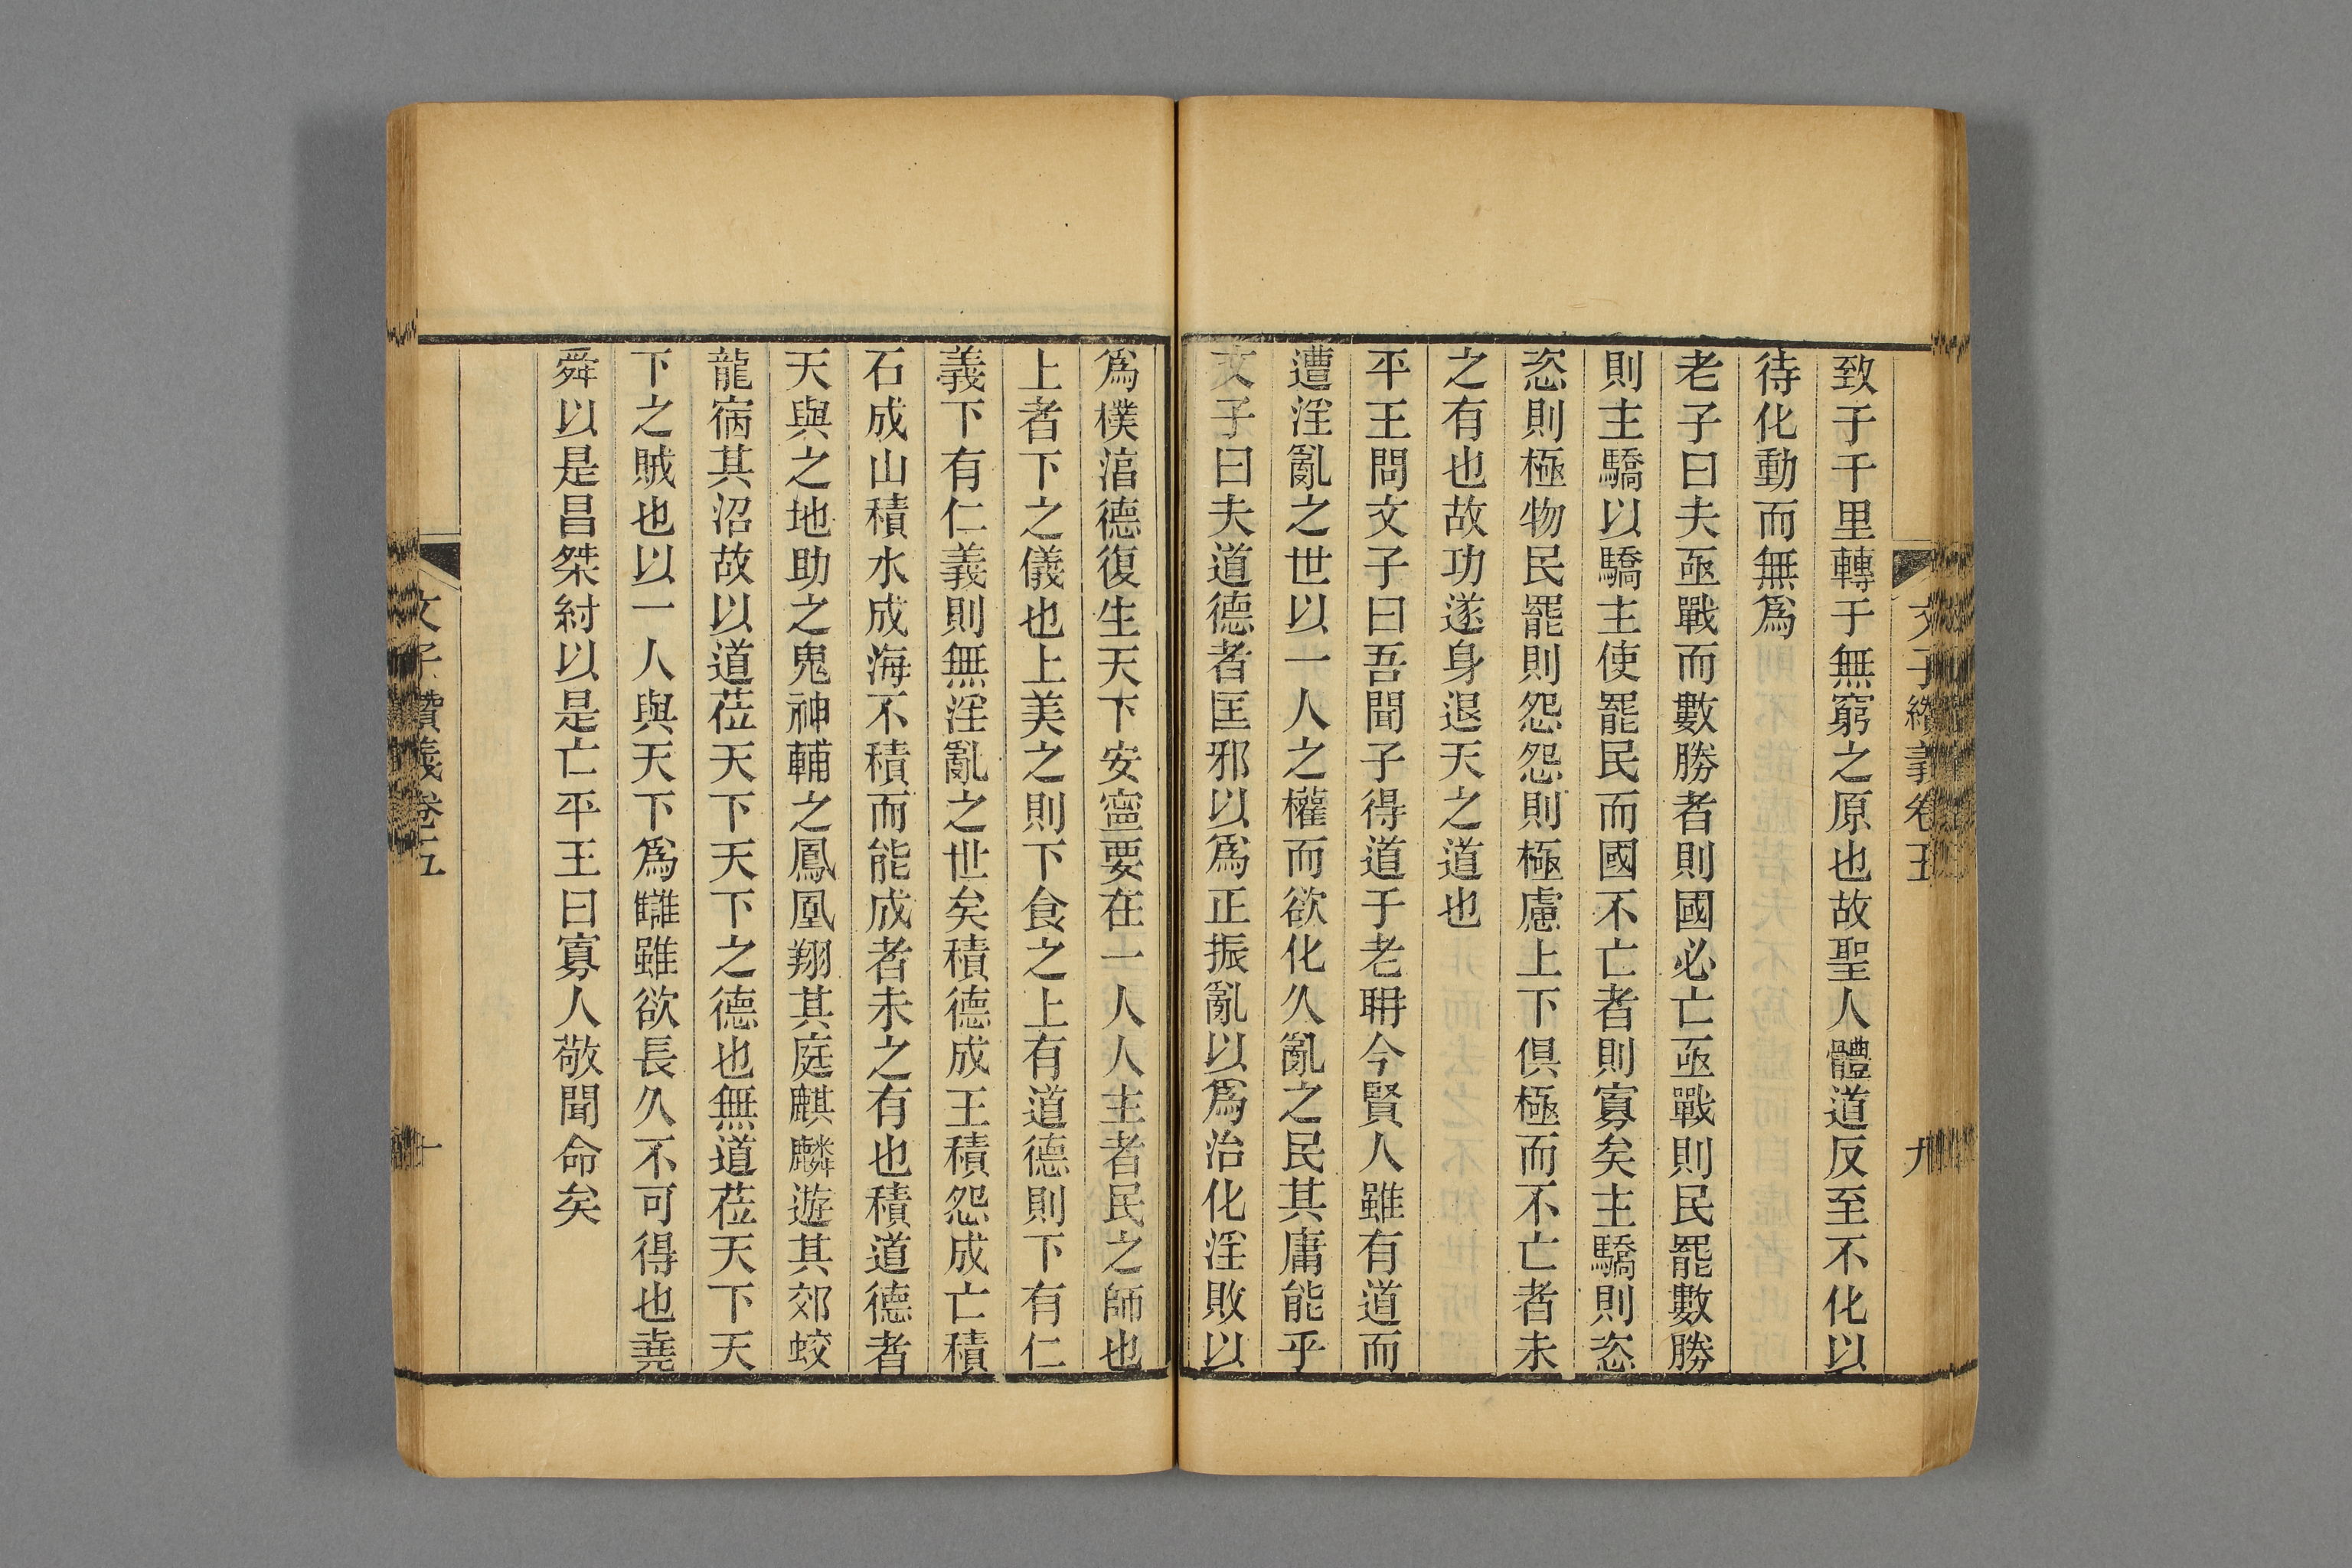 文子纘義卷五 九
致于千里轉于無窮之原也故聖人體道反至不化以
待化動而無爲
老子曰夫亟戰而數勝者則國必亡亟戰則民罷數勝
則主驕以驕主使罷民而國不亡者則寡矣主驕則恣
恣則極物民罷則怨怨則極慮上下俱極而不亡者未
之有也故功遂身退天之道也
平王問文子曰吾聞子得道于老聃今賢人雖有道而
遭淫亂之世以一人之權而欲化久亂之民其庸能乎
文子曰夫道德者匡邪以爲正振亂以爲治化淫敗以
爲樸湻德復生天下安寧要在一人人主者民之師也
上者下之儀也上美之則下食之上有道德則下有仁
義下有仁義則無淫亂之世矣積德成王積怨成亡積
石成山積水成海不積而能成者未之有也積道德者
天與之地助之鬼神輔之鳳凰翔其庭麒麟遊其郊蛟
龍宿其沼故以道莅天下天下之德也無道莅天下天
下之賊也以一人與天下爲讎雖欲長久不可得也堯
舜以是昌桀紂以是亡平王曰寡人敬聞命矣
文子纘義卷五 十